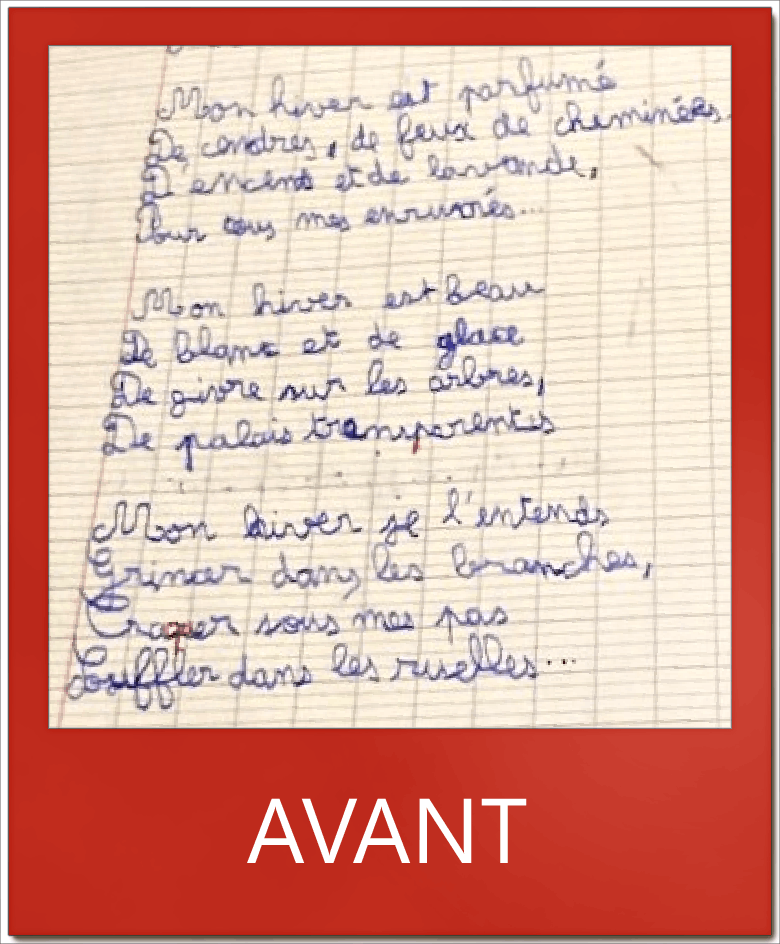 Mon hiver est parfumé
De cendres, de feux de cheminées.
D'encens et de lavande,
Pour tous mes enrumés...
Mon hiver est beau
De blanc et de glace
De givre sur les arbres,
De palais transparents
Mon hiver je l'entends
Grincer dans les branches,
Craquer sous mes pas
Souffler dans les ruelles...
AVANT